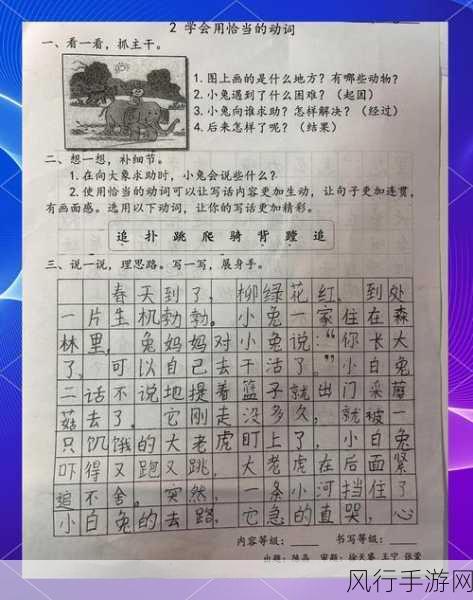 2 学会用恰当的动词
一、看一看，抓主干。
1. 图上画的是什么地方？有哪些动物？
2. 小兔遇到了什么困难？（起因）
3. 小兔向谁求助？怎样解决？（经过）
4. 后来怎样了呢？（结果）
二、想一想，补细节。
1. 在向大象求助时，小兔会说些什么？
2. 使用恰当的动词可以让写话内容更加生动，让句子更加连贯，
有画面感。选用以下动词，让你的写话更加精彩。
追 扑 跳 爬 骑 背 蹚 追
三、说一说，理思路。写一写，展身手。
春天到了，柳绿花红，到处
一片生机勃勃。小兔一家住在森
林里，兔妈妈对小兔说：“你长大
了，可以自己去干活了。”小白兔
二话不说地提着篮子就出门采蘑
菇去了。它刚走没多久，就被一
只饥饿的大老虎盯上了，小白兔
吓得又跑又跳，大老虎在后面紧
追不舍。突然，一条小河挡住了
小白兔的去路，它急的直哭，心
内容等级： 书写等级：
出题：陈燕 审题：徐天睿 王宁 张莹
风行手游网